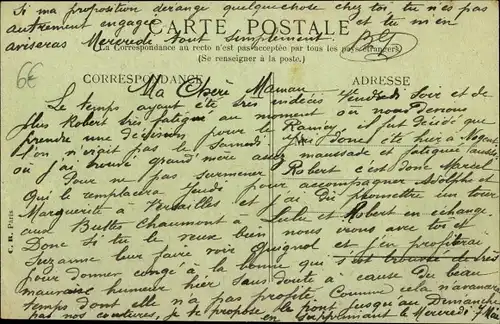 Si ma proposition dérange quelque chose chez toi, tu n'es pas
autrement engagée et tu m'en
aviseras Mercredi tout simplement.
CARTE POSTALE
La Correspondance au recto n'est pas acceptée par tous les pays étrangers
(Se renseigner à la poste.)
CORRESPONDANCE
ADRESSE
6€
Ma Chère Maman
Le temps ayant été très indécis Vendredi soir et de
plus Robert très fatigué au moment où nous devions
prendre une décision pour le Raincy, il fut décidé que
l'on n'irait pas le Samedi. J'ai donc été hier à Nogent
où j'ai trouvé grand'mère assez maussade et fatiguée aussi.
Pour ne pas surmener Robert c'est donc Marcel
Qui le remplacera Jeudi pour accompagner Adolphe et
Marguerite à Versailles et j'ai pu permettre un tour
aux Buttes Chaumont à Lili et Robert en échange
Donc si tu le veux bien nous irons avec toi et
Suzanne leur faire voir Guignol et j'en profiterai
pour donner congé à la bonne qui s'est trouvée de très
mauvaise humeur hier sans doute à cause du beau
temps dont elle n'a pas profité. Comme cela n'avance
pas nos coutures, je te propose le pont jusqu'au Dimanche
en supprimant le Mercredi 7 Mai
C. R. Paris